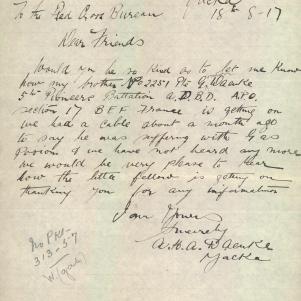 Yacka
To the Red Cross Bureau 18th 5-17
Dear Friends
Would you be so kind as to let me know
how my brother No 2251 Pte G. Daenke
5th Pioneers Battalion A.D.B.D. APO.
section 17 B.E.F. France is getting on
we had a cable about a month ago
to say he was suffering with Gas
Poison & we have not heard any more
we would be very please to hear
how the little fellow is getting on
thanking you for any information
I am Yours
Sincerely
A.H.A. Daenke
Yacka
No PRs
31-5-7